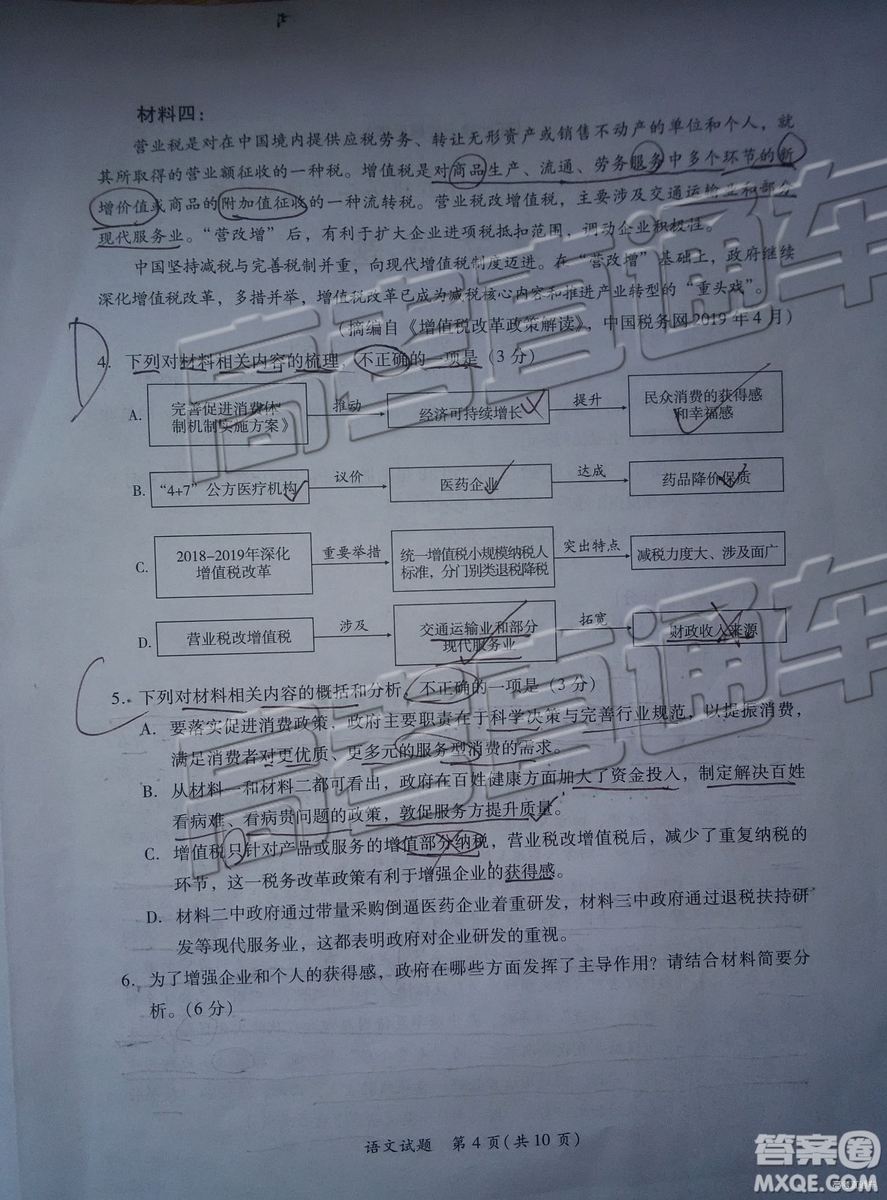 材料四：
营业税是对在中国境内提供应税劳务、转让无形资产或销售不动产的单位和个人，就
其所取得的营业额征收的一种税。增值税是对商品生产、流通、劳务服务中多个环节的新
增价值或商品的附加值征收的一种流转税。营业税改增值税，主要涉及交通运输业和部分
现代服务业。“营改增”后，有利于扩大企业进项税抵扣范围，调动企业积极性。
中国坚持减税与完善税制并重，向现代增值税制度迈进。在“营改增”基础上，政府继续
深化增值税改革，多措并举，增值税改革已成为减税核心内容和推进产业转型的“重头戏”。
（摘编自《增值税改革政策解读》，中国税务网2019年4月）
D
4. 下列对材料相关内容的梳理，不正确的一项是（3分）
A. 完善促进消费体 制机制实施方案》 推动 经济可持续增长 提升 民众消费的获得感 和幸福感
B. “4+7”公方医疗机构 议价 医药企业 达成 药品降价保质
C. 2018-2019年深化 增值税改革 重要举措 统一增值税小规模纳税人 标准，分门别类退税降税 突出特点 减税力度大、涉及面广
D. 营业税改增值税 涉及 交通运输业和部分 现代服务业 拓宽 财政收入来源
C
5. 下列对材料相关内容的概括和分析，不正确的一项是（3分）
A. 要落实促进消费政策，政府主要职责在于科学决策与完善行业规范，以提振消费，
满足消费者对更优质、更多元的服务型消费的需求。
B. 从材料一和材料二都可看出，政府在百姓健康方面加大了资金投入，制定解决百姓
看病难、看病贵问题的政策，敦促服务方提升质量。
C. 增值税只针对产品或服务的增值部分纳税，营业税改增值税后，减少了重复纳税的
环节，这一税务改革政策有利于增强企业的获得感。
D. 材料二中政府通过带量采购倒逼医药企业着重研发，材料三中政府通过退税扶持研
发等现代服务业，这都表明政府对企业研发的重视。
6. 为了增强企业和个人的获得感，政府在哪些方面发挥了主导作用？请结合材料简要分
析。（6分）
语文试题 第4页（共10页）
高考直通车
高考直通车
答案圈
MXQE.COM